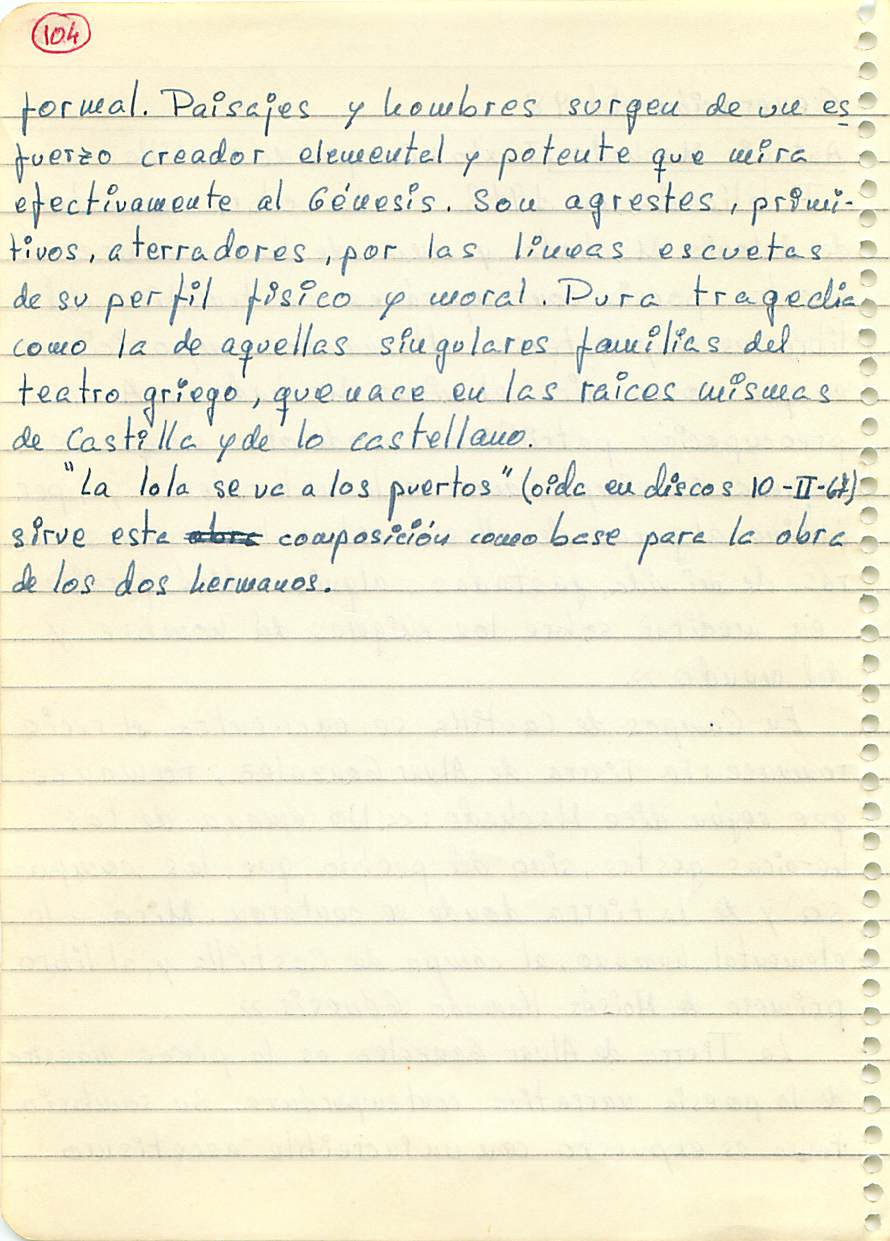 104
formal. Paisajes y hombres surgen de un es
fuerzo creador elemental y potente que mira
efectivamente al Génesis. Son agrestes, primi-
tivos, aterradores, por las líneas escuetas
de su perfil físico y moral. Dura tragedia
como la de aquellas singulares familias del
teatro griego, que nace en las raíces mismas
de Castilla y de lo castellano.
"La lola se va a los puertos" (oida en discos 10-II-67)
sirve esta obra composición como base para la obra
de los dos hermanos.